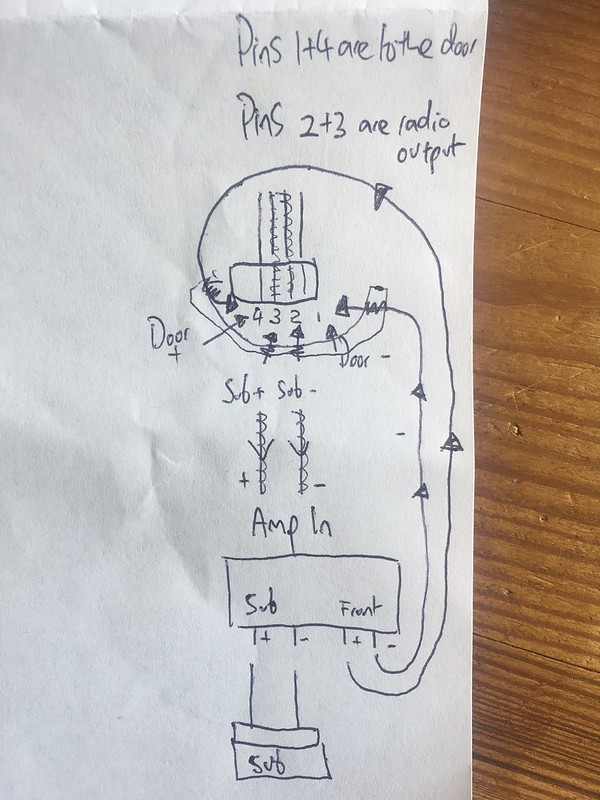 Pins 1+4 are to the door
Pins 2+3 are radio
output
4 3 2 1
Door
+
Door -
Sub+ Sub-
-
+ -
Amp In
Sub Front
+ - + -
Sub